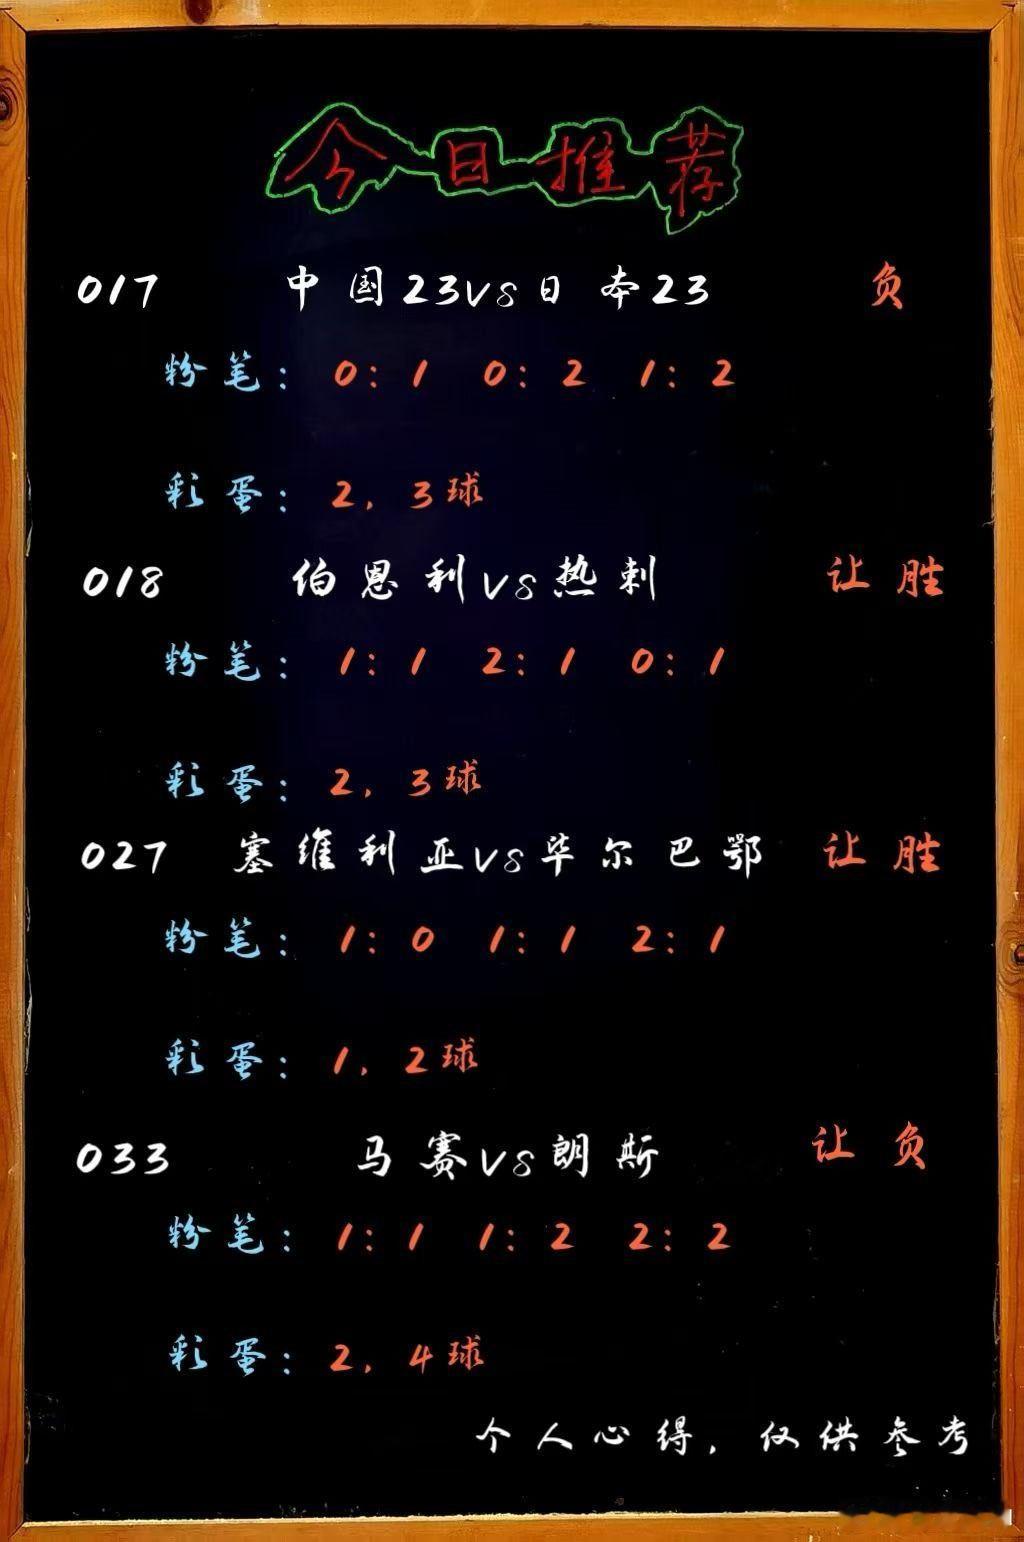 今日推荐
017 中国23vs日本23 负
粉笔: 0:1 0:2 1:2
彩蛋: 2, 3球
018 伯恩利vs热刺 让胜
粉笔: 1:1 2:1 0:1
彩蛋: 2, 3球
027 塞维利亚vs毕尔巴鄂 让胜
粉笔: 1:0 1:1 2:1
彩蛋: 1, 2球
033 马赛vs朗斯 让负
粉笔: 1:1 1:2 2:2
彩蛋: 2, 4球
个人心得, 仅供参考